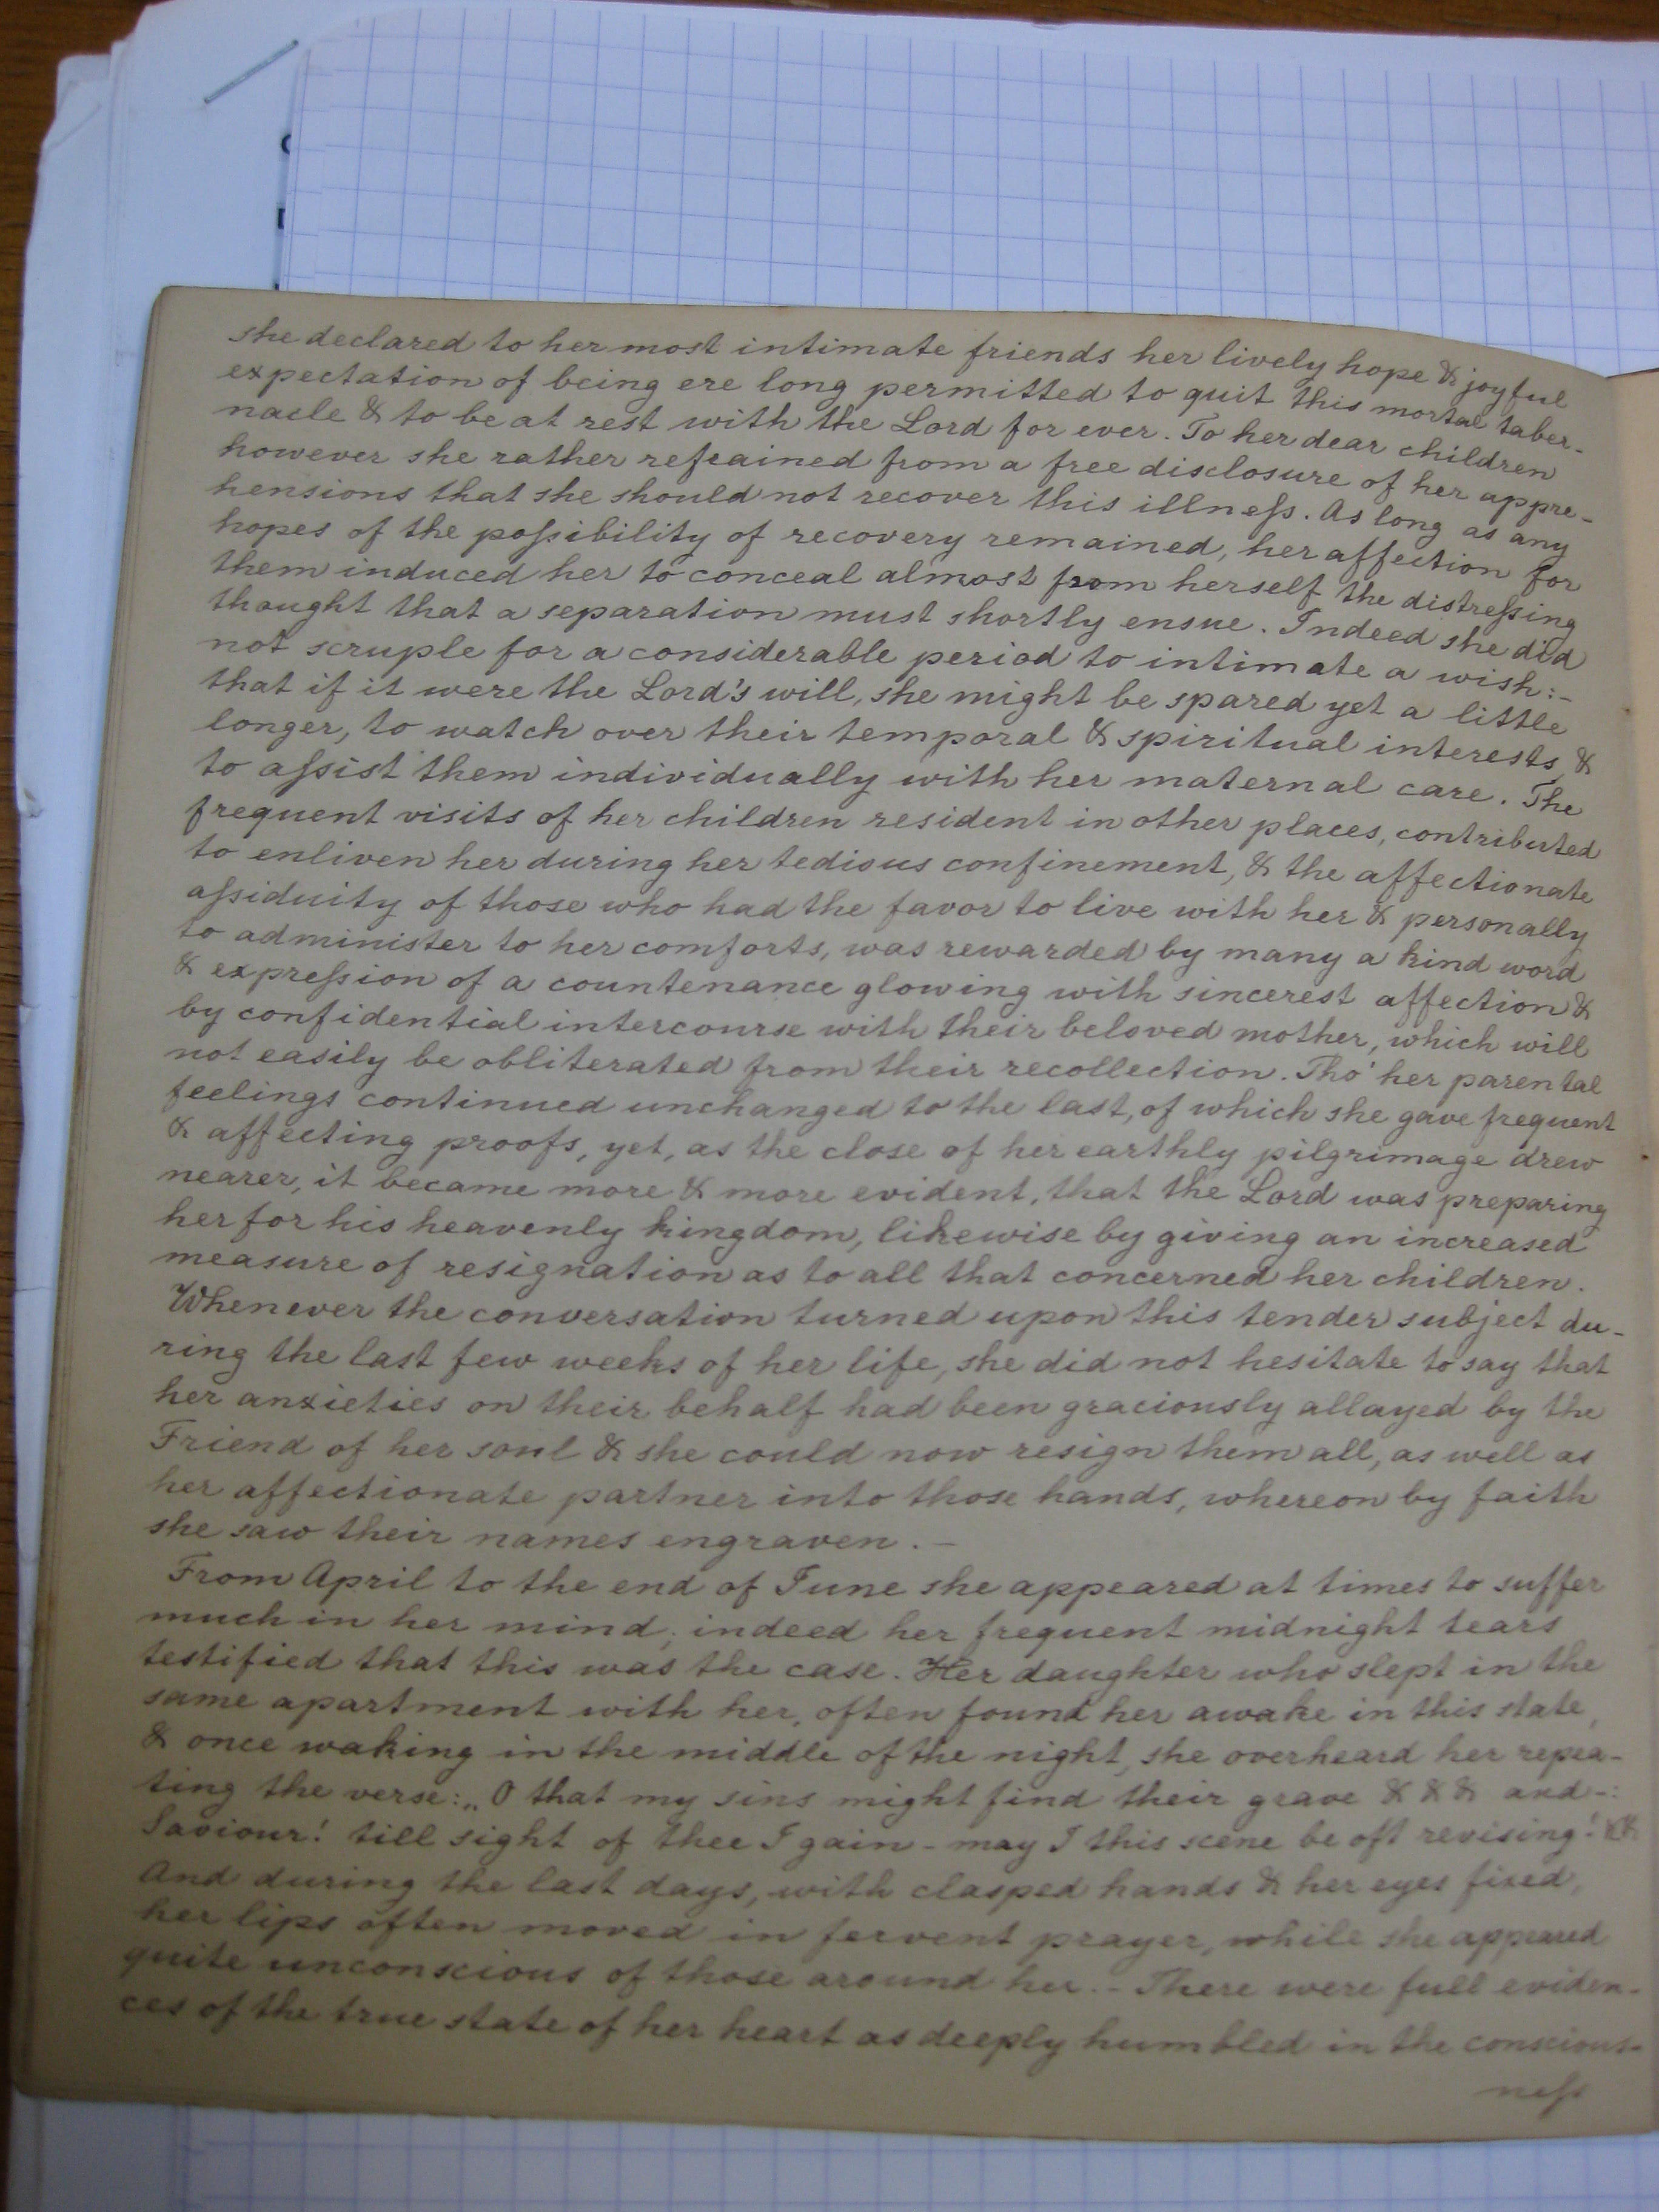 she declared to her most intimate friends her lively hope & joyful
expectation of being ere long permitted to quit this mortal taber-
nacle & to be at rest with the Lord for ever. To her dear children
however she rather refrained from a free disclosure of her appre-
hensions that she should not recover this illneſs. As long as any
hopes of the poſsibility of recovery remained, her affection for
them induced her to conceal almost from herself the distreſsing
thought that a separation must shortly ensue. Indeed she did
not scruple for a considerable period to intimate a wish:-
that if it were the Lord's will, she might be spared yet a little
longer, to watch over their temporal & spiritual interests, &
to aſsist them individually with her maternal care. The
frequent visits of her children resident in other places, contributed
to enliven her during her tedious confinement, & the affectionate
aſsiduity of those who had the favor to live with her & personally
to administer to her comforts, was rewarded by many a kind word
& expreſsion of a countenance glowing with sincerest affection &
by confidential intercourse with their beloved mother, which will
not easily be obliterated from their recollection. Tho' her parental
feelings continued unchanged to the last, of which she gave frequent
& affecting proofs, yet, as the close of her earthly pilgrimage drew
nearer, it became more & more evident, that the Lord was preparing
her for his heavenly kingdom, likewise by giving an increased
measure of resignation as to all that concerned her children.
Whenever the conversation turned upon this tender subject du-
ring the last few weeks of her life, she did not hesitate to say that
her anxieties on their behalf had been graciously allayed by the
Friend of her soul & she could now resign them all, as well as
her affectionate partner into those hands, whereon by faith
she saw their names engraven. -
From April to the end of June she appeared at times to suffer
much in her mind; indeed her frequent midnight tears
testified that this was the case. Her daughter who slept in the
same apartment with her, often found her awake in this state,
& once waking in the middle of the night, she overheard her repea-
ting the verse: „O that my sins might find their grave & & & and-:
Saviour! till sight of thee I gain - may I this scene be oft revising!
And during the last days, with clasped hands & her eyes fixed,
her lips often moved in fervent prayer, while she appeared
quite unconscious of those around her. - There were full eviden-
ces of the true state of her heart as deeply humbled in the conscious-
neſs